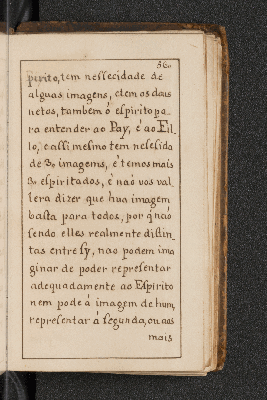 56.
perito, tem nessecidade de
alguas imagens, e tem os dous
netos, tambem ó espirito pa-
ra entender ao Pay, é ao Fil-
lo, e assi mesmo tem nelesida
de 3. imagems, é temos mais
3. espiritados, é naó vos val-
lera dizer que húa imagem
basta para todos, por q̃ nao
sendo elles realmente distin-
tas entre sy, nao podem ima
ginar de poder representar
adequadamente ao Espirito
nem pode á imagem de hum,
representar á segunda, ou aos
mais